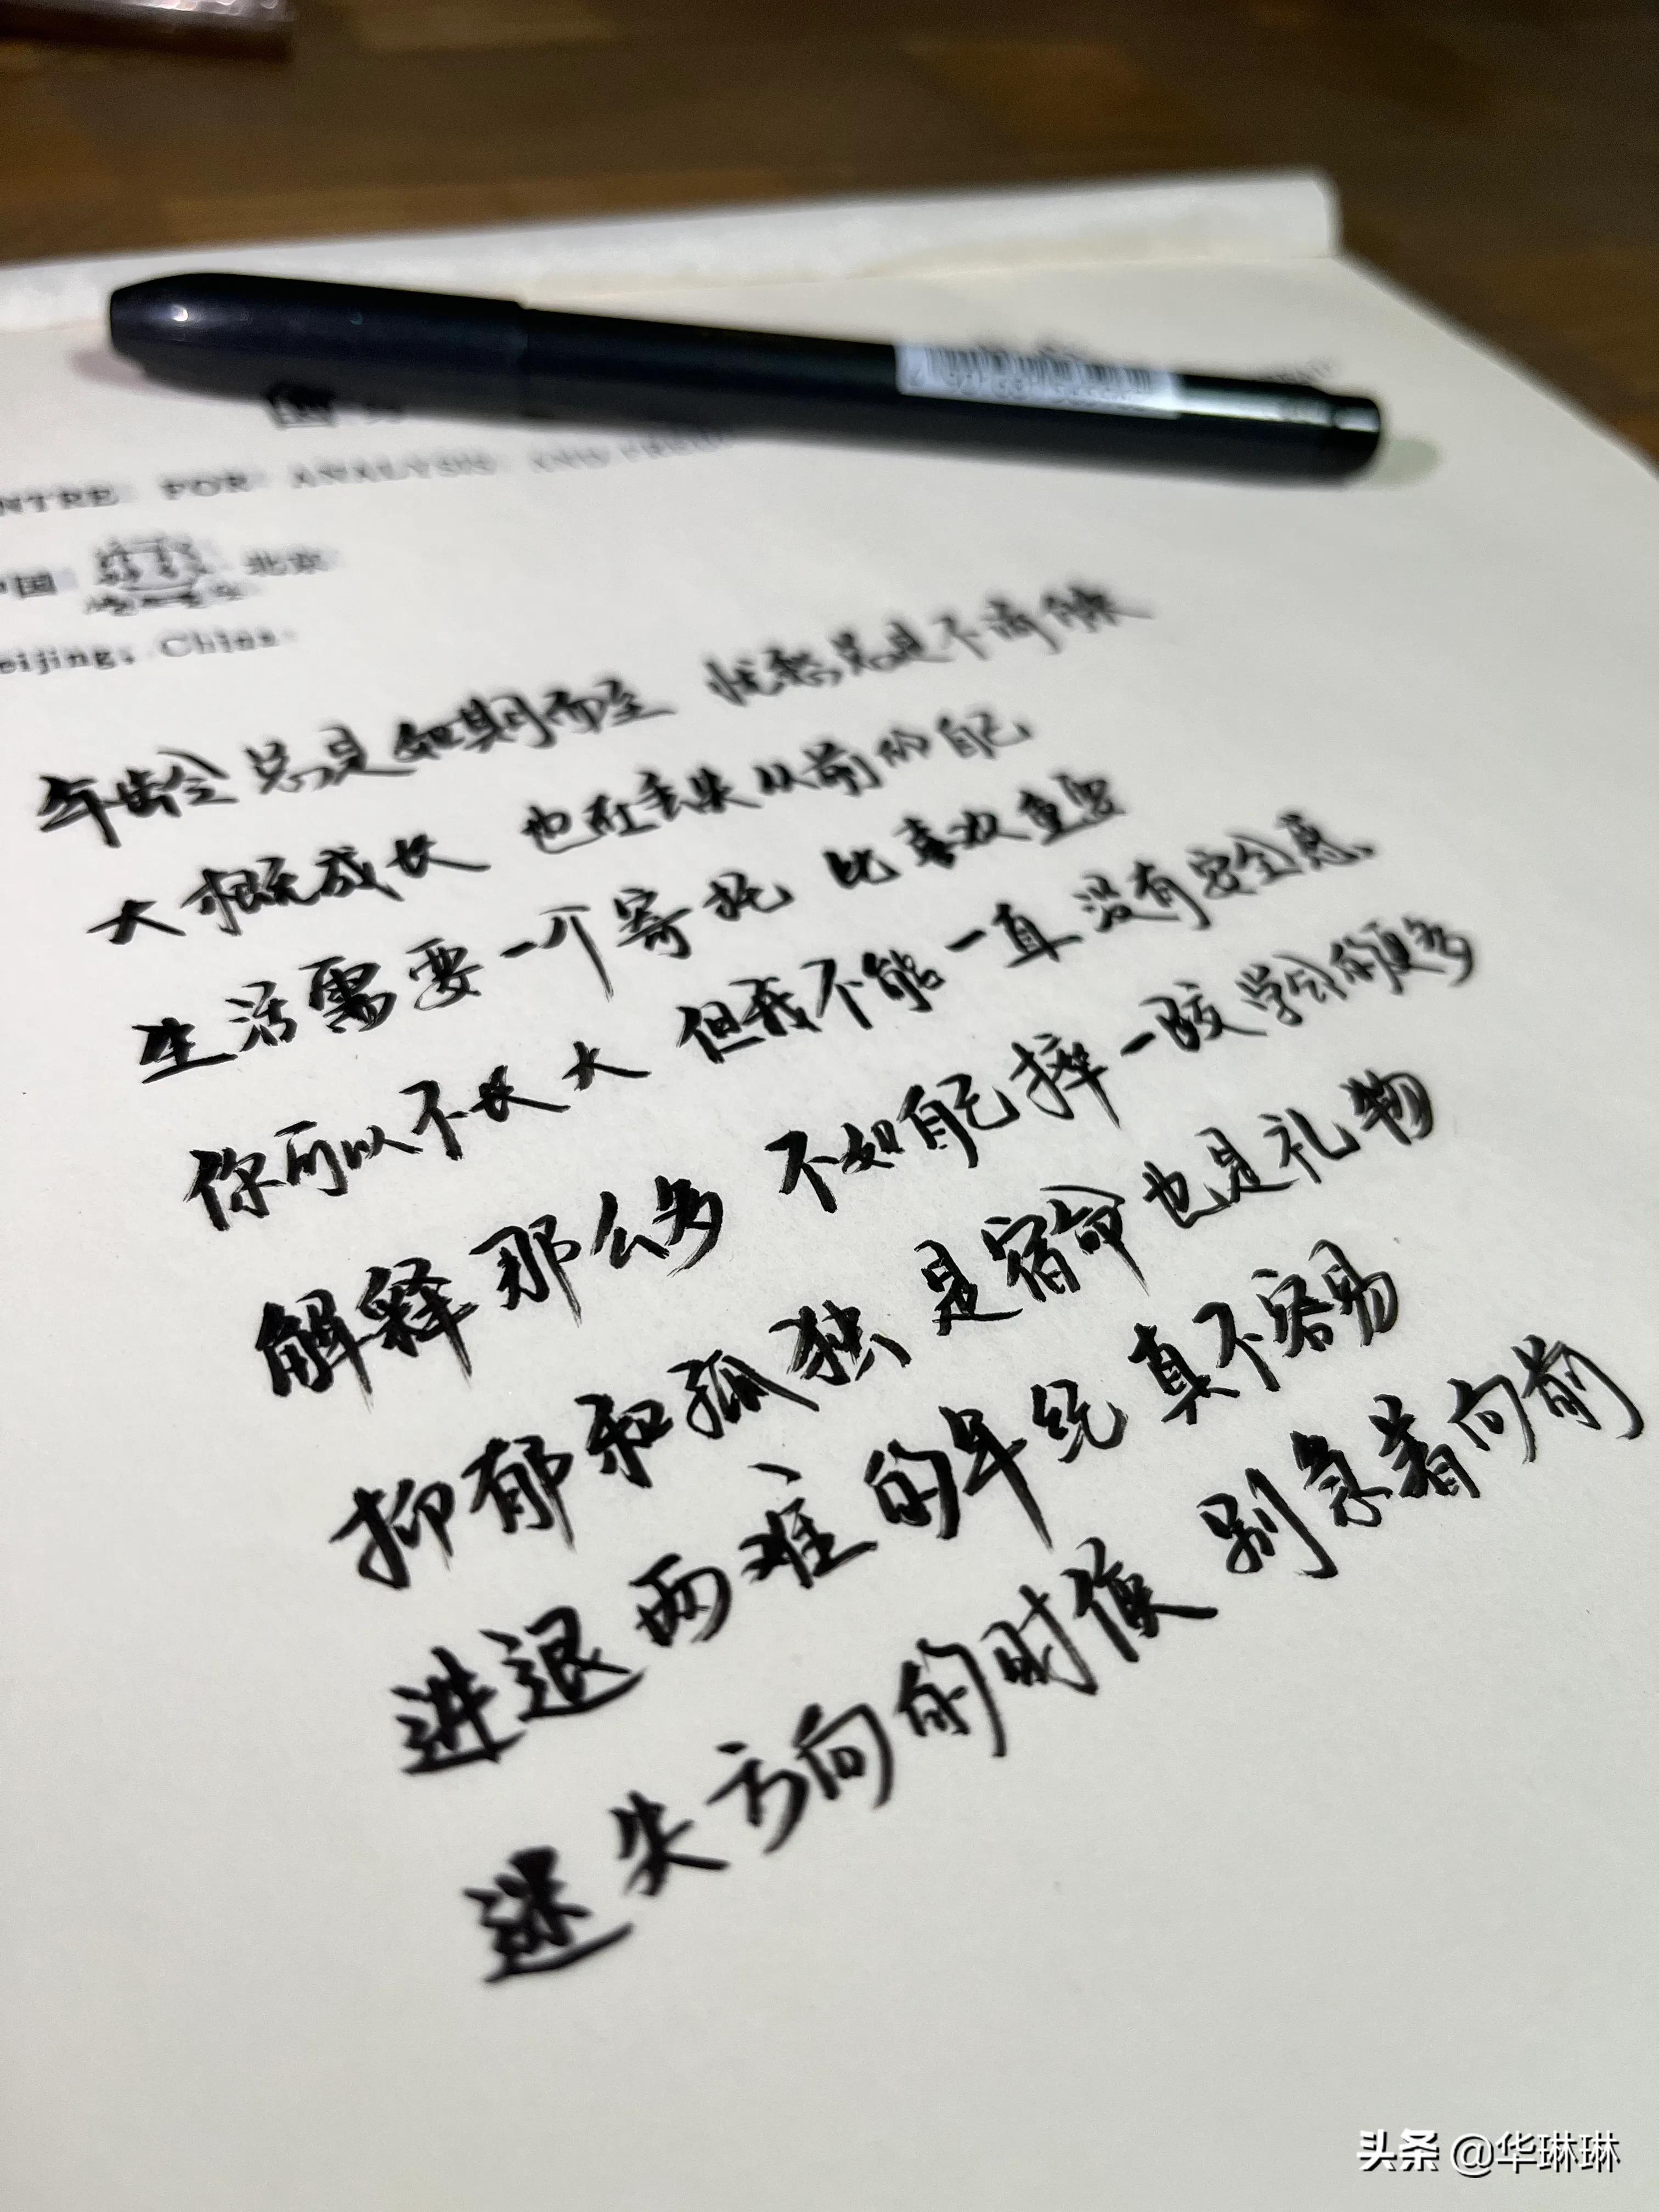 NTRE FOR ANALYSIS AND
中国 北京
eijing, China
年龄总是如期而至 忧愁总是不请自来
大概成长 也在丢失从前的自己
生活需要一个寄托 比喜欢重要
你可以不长大 但我不能一直没有安全感
解释那么多 不如自己摔一跤学会的更多
抑郁和孤独 是宿命也是礼物
进退两难的年纪 真不容易
迷失方向的时候 别急着向前
头条 @华琳琳